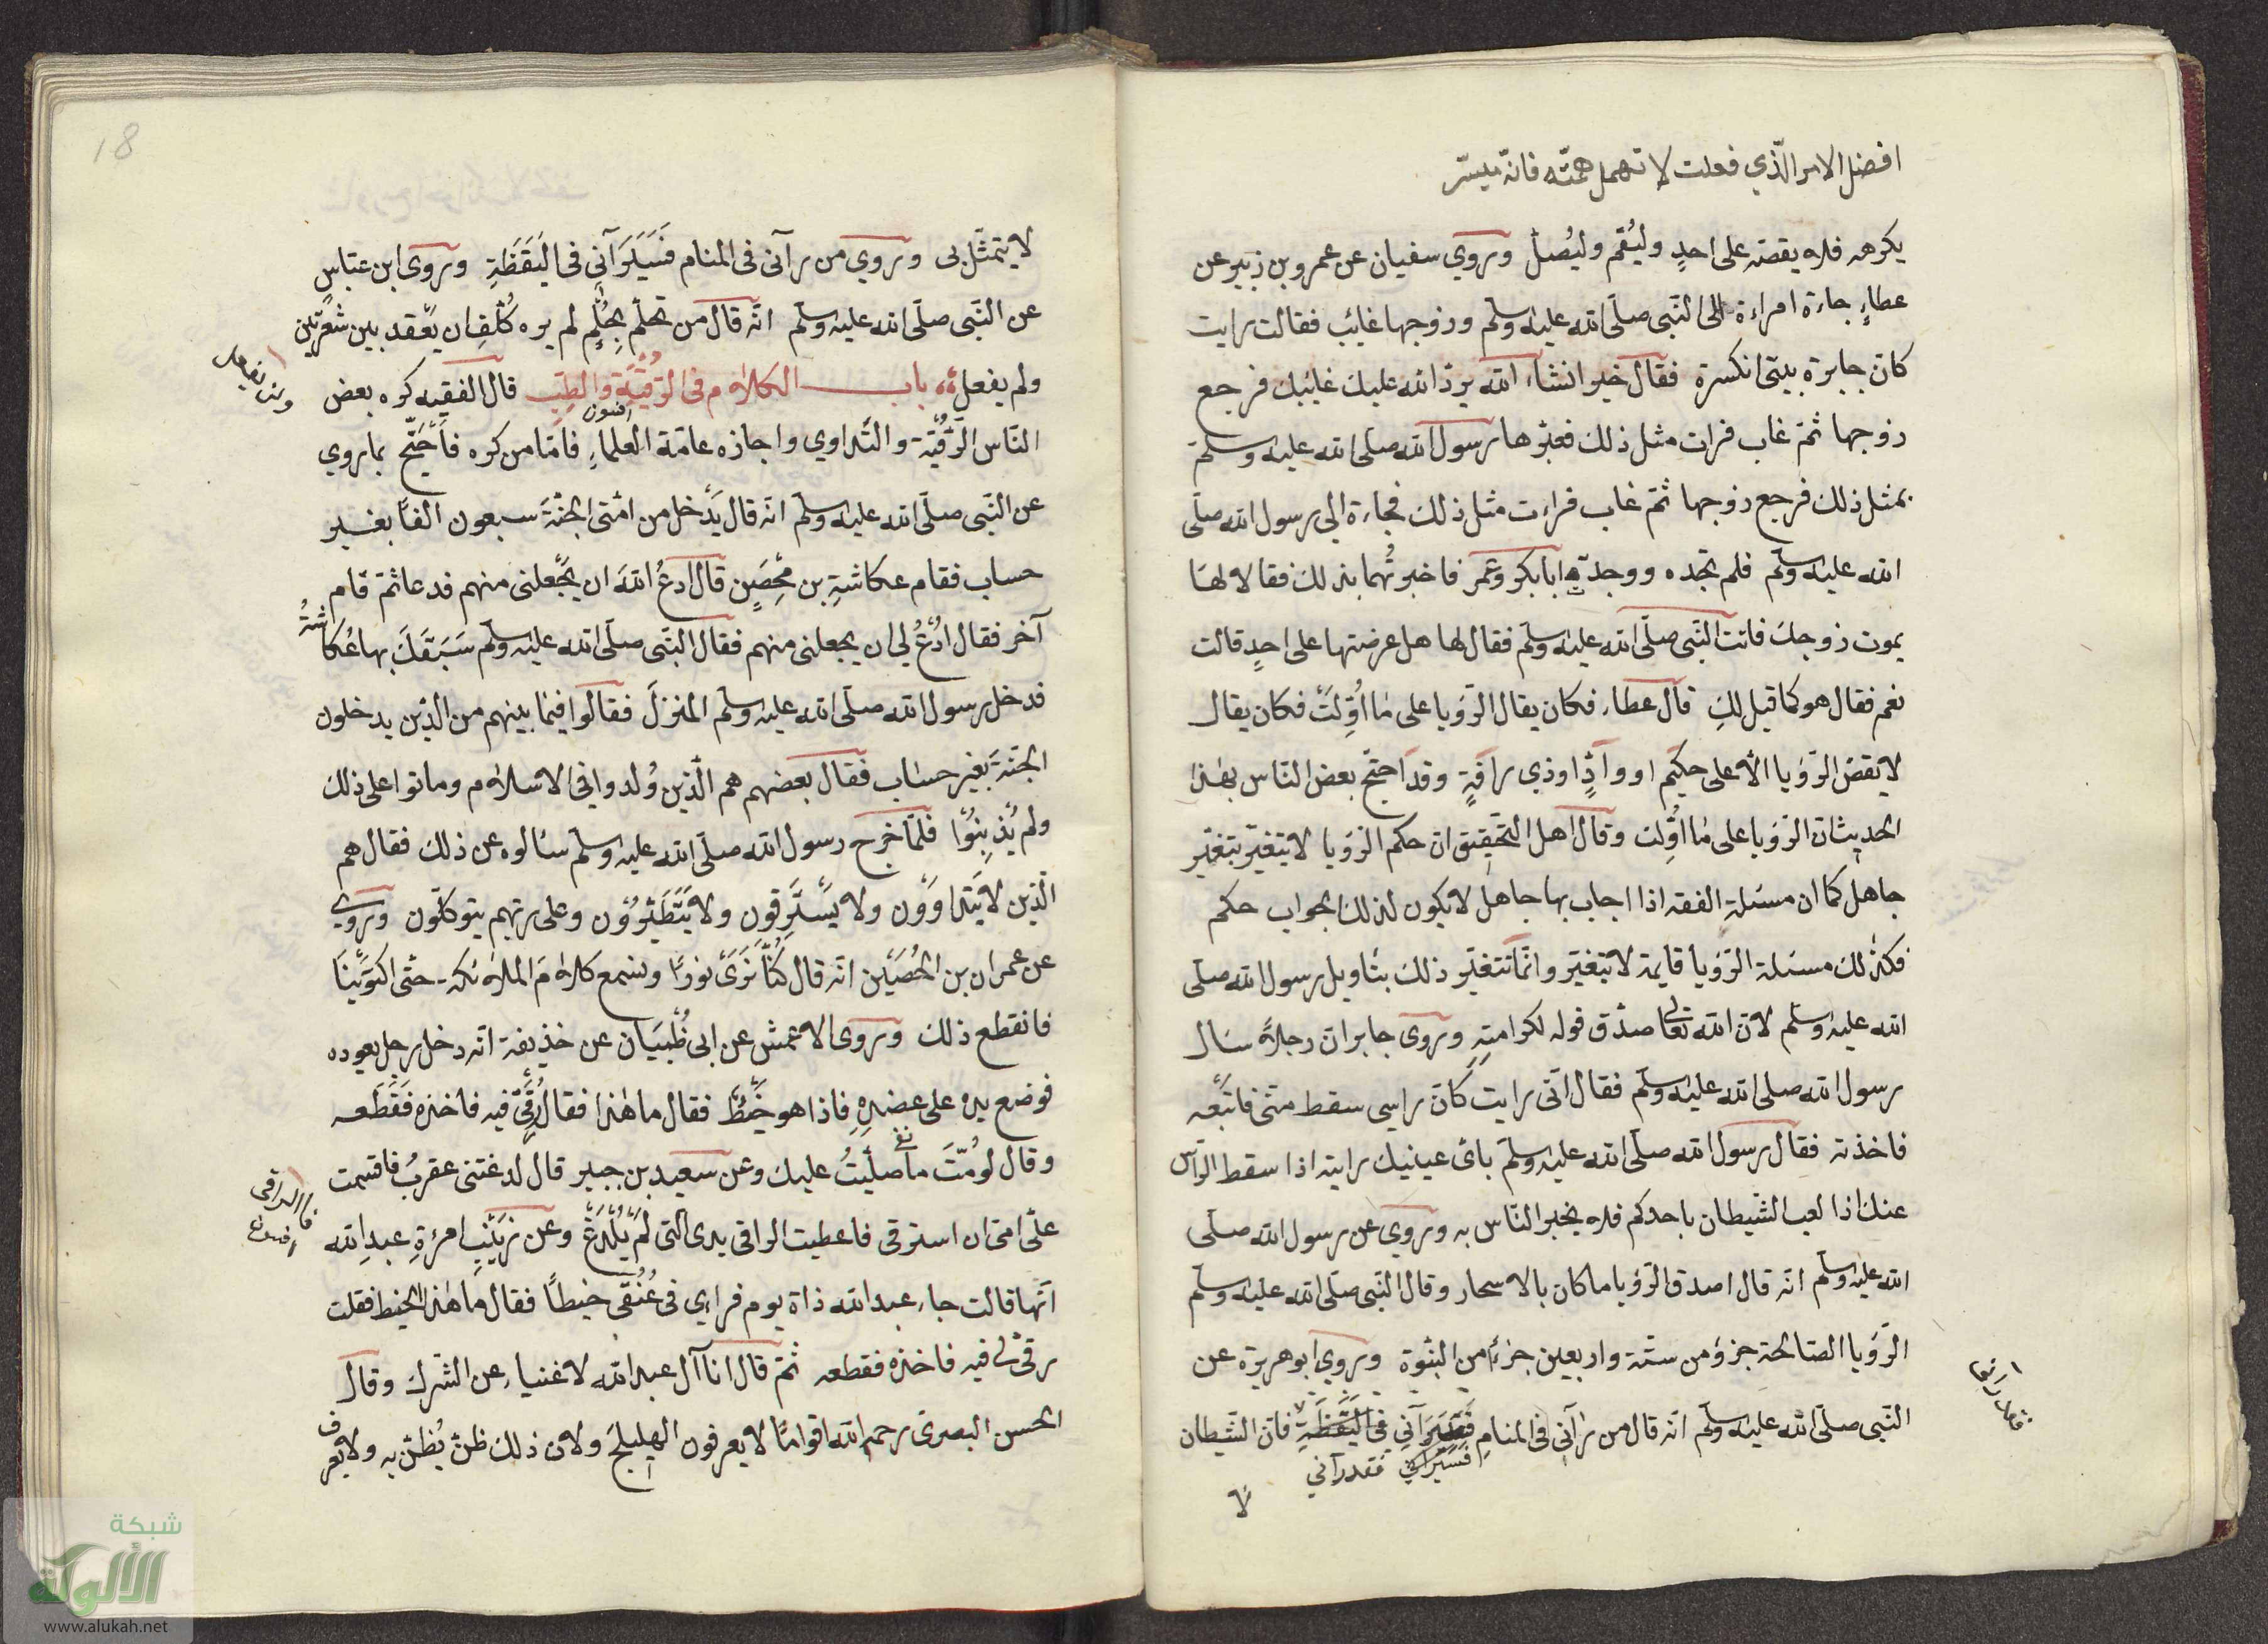 افضل الامر الّذي فعلت لا تهمل همّته فانّه ميسّر
يكرهه فلا يقصّه على احدٍ وليُقم وليُصلّ وروي سفيان عن عمرو بن زبير عن
عطاءٍ جاءة امراءة الى النّبى صلّى الله عليه وسلّم وزوجها غايب فقالت رايت
كانّ جايزة بيتى انكسرة فقال خير انشاء الله يردّ الله عليك غايبك فرجع
زوجها ثمّ غاب فرات مثل ذلك فعبّرها رسول الله صلّى الله عليه وسلّم
بمثل ذلك فرجع زوجها ثمّ غاب فراءت مثل ذلك فجاءة الي رسول الله صلّى
الله عليه وسلّم فلم تجده ووجدة ابابكر وعمر فاخبرتهما بذلك فقالا لها
يموت زوجك فاتت النّبى صلّى الله عليه وسلّم فقال لها هل عرضتها على احدٍ قالت
نعم فقال هو كما قيل لكِ قال عطاء فكان يقال الرّؤيا على ما اُوّلت فكان يقال
لا يقصّ الرّؤيا الّا على حكيم او وادٍّ او ذى رافةٍ وقد احتجّ بعض النّاس بهذا
الحديث انّ الرّؤيا على ما اُوّلت وقال اهل التّحقيق انّ حكم الرّؤيا لا يتغيّر بتغيّر
جاهل كما ان مسئلة الفقه اذا اجاب بها جاهل لا يكون لذلك الجواب حكم
فكذلك مسئلة الرّؤيا قايمة لا تتغيّر وانّما تتغيّر ذلك بتاويل رسول الله صلّى
الله عليه وسلّم لانّ الله تعالى صدّق قوله لكرامته وروى جابر ان رجلاً سال
رسول الله صلى الله عليه وسلّم فقال انّى رايت كانّ راسى سقط منّى فاتبعه
فاخذته فقال رسول الله صلّى الله عليه وسلّم باىّ عينيك رايته اذا سقط الرّاس
عنك اذا لعب الشّيطان باحدكم فلا يخبر النّاس به وروي عن رسول الله صلّى
الله عليه وسلّم انّه قال اصدق الرّؤيا ما كان بالاسحار وقال النّبى صلّى الله عليه وسلّم
الرّؤيا الصّالحة جزؤ من ستّة واربعين جزءً من النبّوة وروي ابو هريرة عن
النّبى صلّى الله عليه وسلّم انّه قال من رآنى فى المنام فسيرآنى فى اليقظة فانّ الشّيطان
فسيرانى فقد رآنى
لا
18
لا يتمثّل بى وروي من رآنى فى المنام فَسَيَرَآنِى فى اليَقَظَةِ وروى ابن عبّاس
عن النّبى صلّى الله عليه وسلّم انّه قال من تحلّم بحُلْمٍ لم يره كُلّف ان يعقد بين شعرتين
ولم يفعل باب الكلام فى الرّقيّة والطبّ قال الفقيه كره بعض
ولن يفعل
افسون
النّاس الرّقيّة والتّداوي واجازه عامّة العلماءِ فامّا من كره فاحتجّ بما روي
عن النّبى صلّى الله عليه وسلّم انّه قال يَدْخل من امّتى الجنّةَ سبعون الفاً بغير
حساب فقام عكاشةِ بن مِحْصَنٍ قال ادعُ اللهَ ان يجعلنى منهم فدعا ثمّ قام
آخر فقال ادْعُ لي ان يجعلنى منهم فقال النّبى صلّى الله عليه وسلّم سَبَقَكَ بها عُكاشةُ
فدخل رسول الله صلّى الله عليه وسلّم المنزلَ فقالوا فيما بينهم من الذّين يدخلون
الجنّةَ بغير حساب فقال بعضهم هم الّذين وُلدوا فى الاسلام وماتوا على ذلك
ولم يُذْنِبُوا فلمّا خرج رسول الله صلّى الله عليه وسلّم سألوه عن ذلك فقال هم
الّذين لا يَتداوَوْن ولا يَسْتَرقون ولا يَتَطَيّرُون وعلى ربّهم يتوكّلون وروي
عن عمران بن الحُصَيْن انّه قال كُنّا نَرَى نورًا ونسمع كلامَ الملائكة حتّى اكتوَيْنَا
فانقطع ذلك وروى الاعمش عن ابى ظُبيَان عن خذيفة انّه دخل رجل يعوده
فوضع يده على عضدهِ فاذا هو خَيْطٌ فقال ما هٰذا فقال رُقَى فيه فاخذه فَقَطَعه
وقال لو مُتّ ما صلّيتُ عليك وعن سعيد بن جبير قال لدغتنى عقربٌ فاقسمت
علىّ امّى ان استرقى فاعطيت الراقى يدى الّتى لَمْ يُلْدَغْ وعن زَيْنَبِ امرءةِ عبدِ الله
انّها قالت جاء عبد الله ذاة يوم فراءى فى عُنُقى خيطاً فقال ما هٰذا الخيط فقلت
رقى لى فيه فاخذه فقطعه ثمّ قال انا آل عبد الله لاغنياء عن الشّرك وقال
الحسن البصرى رحم الله اقوامًا لا يعرفون الهليلج ولان ذلك ظنّ يُظنّ به ولا يعرف
شبكة
الألوكة
www.alukah.net